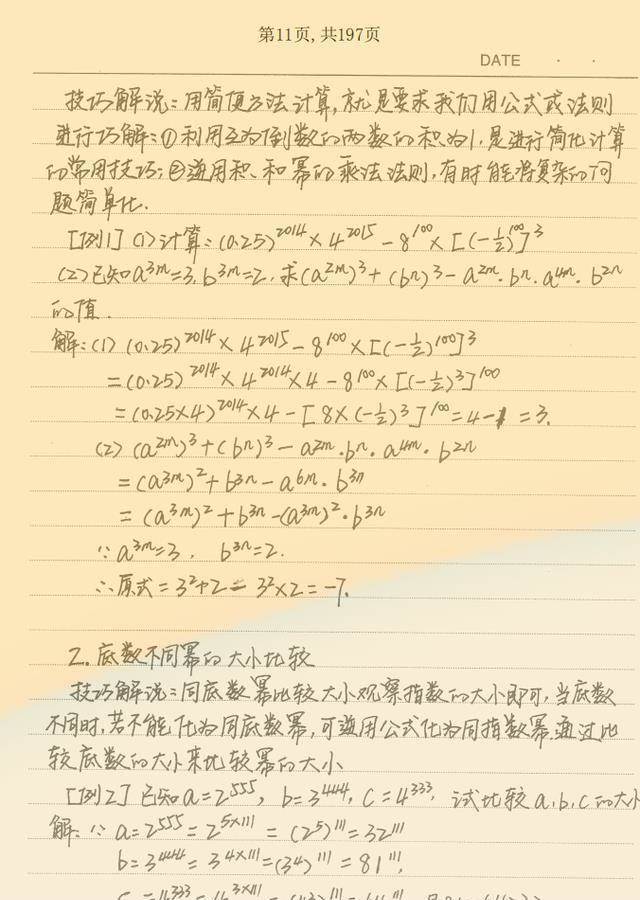 第11页,共197页
DATE · ·
技巧解说:用简便方法计算,就是要求我们用公式或法则
进行巧解:①利用互为倒数的两数的积为1,是进行简化计算
的常用技巧;②逆用积、和幂的乘法法则,有时能将复杂的问
题简单化.
[例1] (1)计算:(0.25)²⁰¹⁴×4²⁰¹⁵-8¹⁰⁰×[(-1/2)¹⁰⁰]³
(2)已知a³ᵐ=3,b³ⁿ=2,求(a²ᵐ)³+(bⁿ)³-a²ᵐ·bⁿ·a⁴ᵐ·b²ⁿ
的值.
解:(1) (0.25)²⁰¹⁴×4²⁰¹⁵-8¹⁰⁰×[(-1/2)¹⁰⁰]³
=(0.25)²⁰¹⁴×4²⁰¹⁴×4-8¹⁰⁰×[(-1/2)³]¹⁰⁰
=(0.25×4)²⁰¹⁴×4-[8×(-1/2)³]¹⁰⁰=4-1=3.
(2) (a²ᵐ)³+(bⁿ)³-a²ᵐ·bⁿ·a⁴ᵐ·b²ⁿ
=(a³ᵐ)²+b³ⁿ-a⁶ᵐ·b³ⁿ
=(a³ᵐ)²+b³ⁿ-(a³ᵐ)²·b³ⁿ
∵a³ᵐ=3, b³ⁿ=2.
∴原式=3²+2-3²×2=-7.
2.底数不同幂的大小比较
技巧解说:同底数幂比较大小观察指数的大小即可,当底数
不同时,若不能化为同底数幂,可逆用公式化为同指数幂.通过比
较底数的大小来比较幂的大小
[例2]已知a=2⁵⁵⁵, b=3⁴⁴⁴, c=4³³³, 试比较a,b,c的大小
解:∵ a=2⁵⁵⁵=2⁵ˣ¹¹¹=(2⁵)¹¹¹=32¹¹¹
b=3⁴⁴⁴=3⁴ˣ¹¹¹=(3⁴)¹¹¹=81¹¹¹,